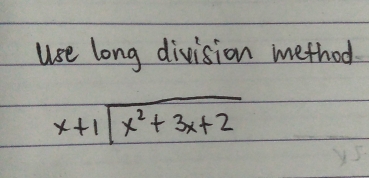 Use long division method
x+1 | x² + 3x + 2